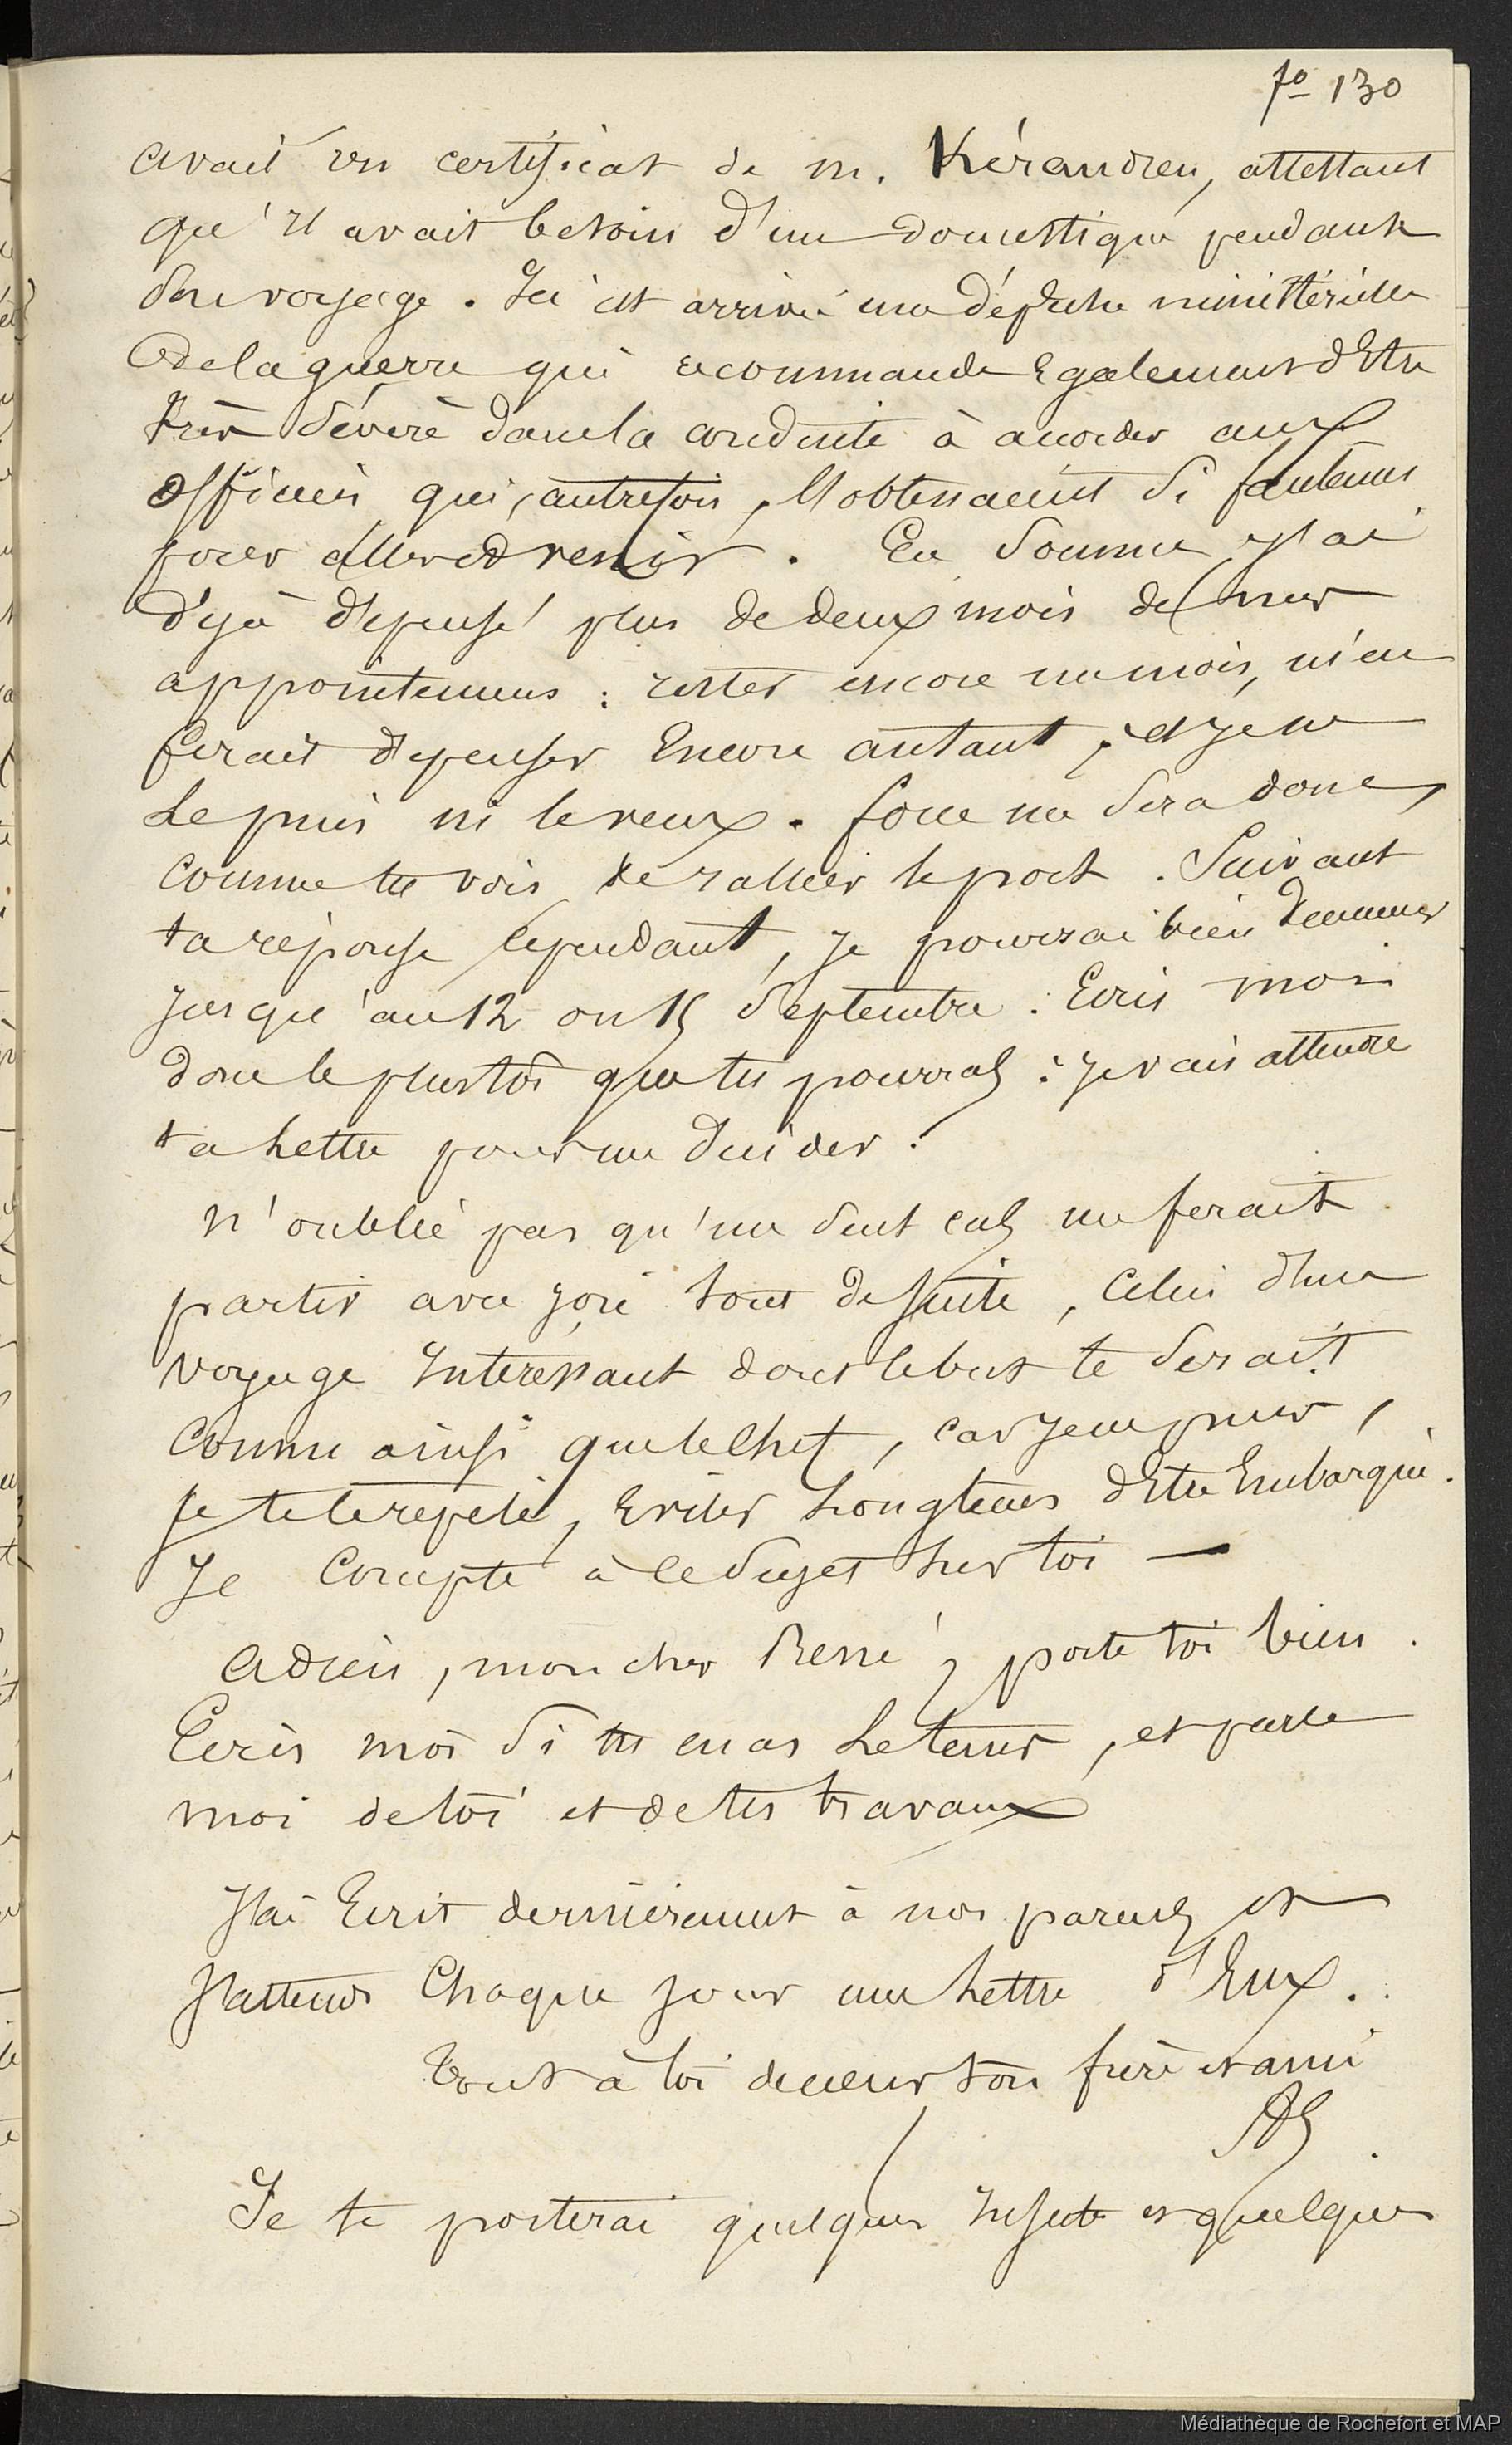 fo 130
avait un certificat de m. Kérandren, attestant
qu'il avait besoin d'un domestique pendant
son voyage. Ici est arrivé une dépêche ministérielle
de la guerre qui recommande Egalement d'Etre
très sévère dans la conduite à accorder aux
officiers qui, autrefois, l'obtenaient si
pour aller et venir. En somme j'ai
déjà dépensé plus de deux mois de mes
appointemens : rester encore un mois, m'en
ferait dépenser Encore autant, et je ne
le puis ni le veux. force me sera donc,
comme tu vois de rallier le port. Suivant
ta réponse cependant, je pourrai bien demeurer
jusqu'au 12 ou 15 septembre. Ecris moi
donc le plustôt que tu pourras : je vais attendre
ta lettre pour me décider.
N'oublie pas qu'un seul cas me ferait
partir avec joie tout de suite, celui d'un
voyage Interessant dont le but te serait
connu ainsi que le chef, car je ne puis,
je te le repete, Eviter longtems d'Etre Embarqué.
Je Compte à ce sujet sur toi —
adieu, mon cher René, porte toi bien.
Ecris moi si tu en as le tems, et parle
moi de toi et de tes travaux
J'ai Ecrit dernièrement à nos parens et
J'attends Chaque jour une lettre d'Eux.
Tout à toi de cœur ton frère et ami
Je te porterai quelques Insectes et quelques
Médiathèque de Rochefort et MAP